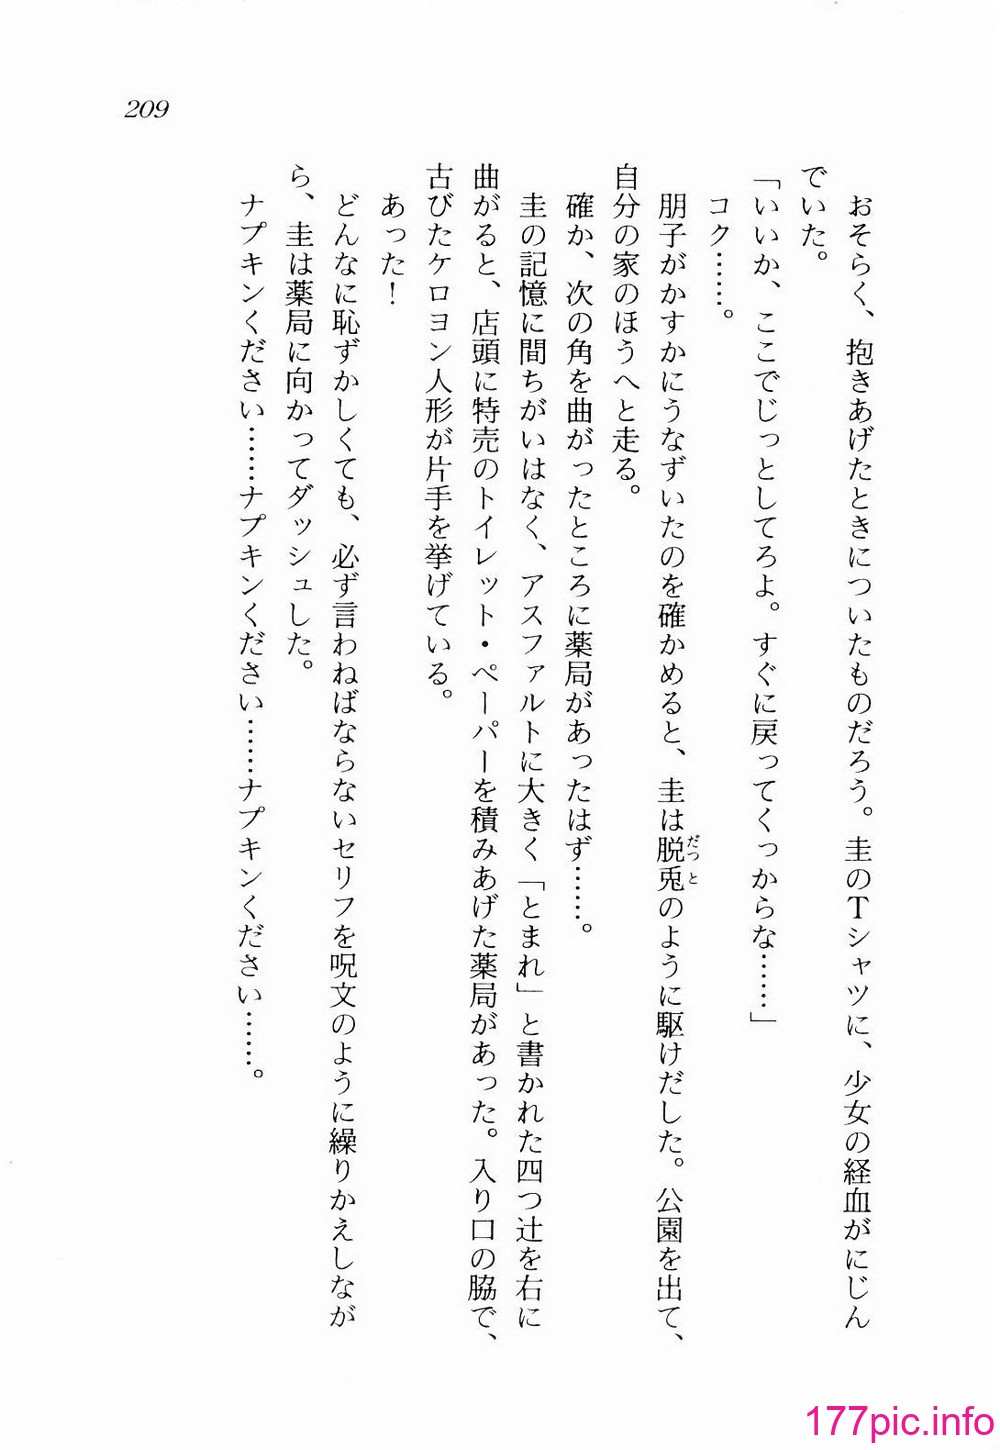 209
おそらく、抱きあげたときについたものだろう。圭のTシャツに、少女の経血がにじん
でいた。
「いいか、ここでじっとしてろよ。すぐに戻ってくっからな……」
コク……。
朋子がかすかにうなずいたのを確かめると、圭は脱兎のように駆けだした。公園を出て、
だっと
自分の家のほうへと走る。
確か、次の角を曲がったところに薬局があったはず……。
圭の記憶に間ちがいはなく、アスファルトに大きく「とまれ」と書かれた四つ辻を右に
曲がると、店頭に特売のトイレット・ペーパーを積みあげた薬局があった。入り口の脇で、
古びたケロヨン人形が片手を挙げている。
あった！
どんなに恥ずかしくても、必ず言わねばならないセリフを呪文のように繰りかえしなが
ら、圭は薬局に向かってダッシュした。
ナプキンください……ナプキンください……ナプキンください……。
177pic.info